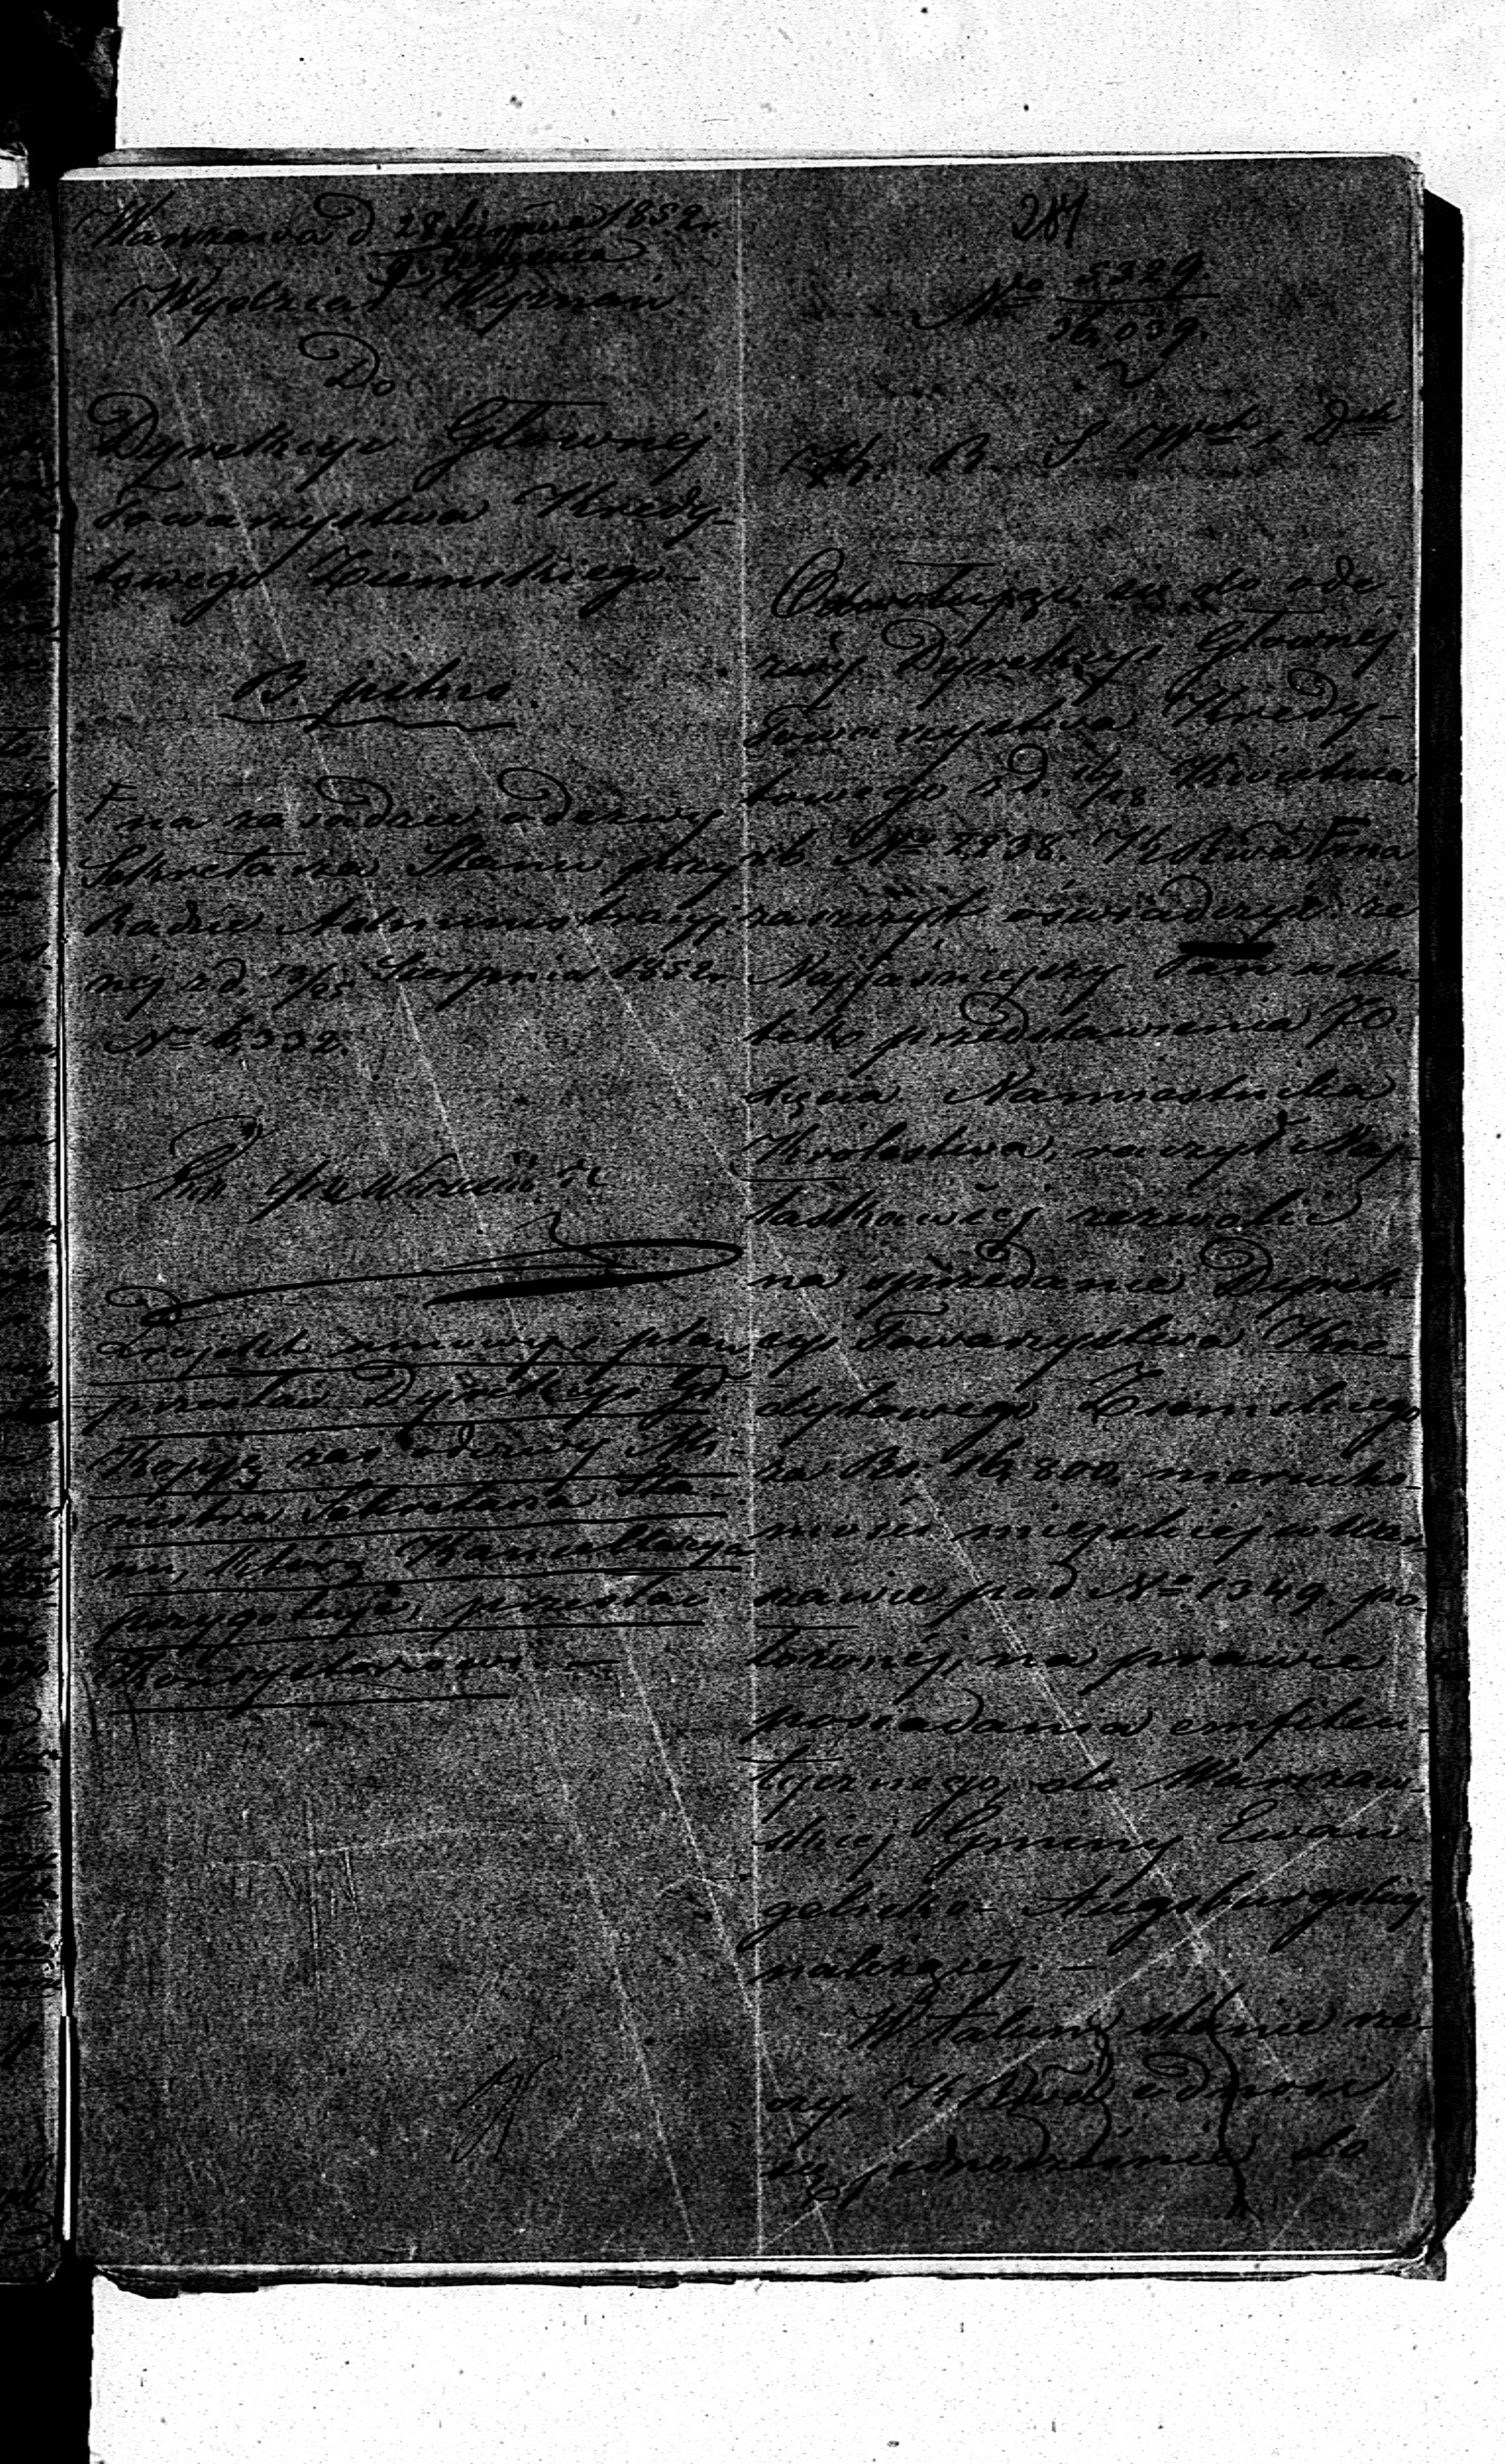 Warszawa d. 28 Sierpnia 1852 r.
9 Września
Wydział Wyznań
Do
Dyrekcyi Głównéj
Towarzystwa Kredy-
towego Ziemskiego
B. pilno
F na zasadzie odezwy
Sekretarza Stanu przy
Radzie Administracyj
néj z d. 13/25 Sierpnia 1852 r.
No 6,332.
umowy i plan
przesłać Dyrekcyi Gł.
Kopję zaś odezwy Mi-
nistra Sekretarza Sta-
nu, którą Kancellarya
przygotuje, przesłać
Konsystorzowi —
281
No 5329.
36,039.
Odwołując się do ode-
zwy Dyrekcyi Głównéj
Towarzystwa Kredy-
towego z d. Kwietnia
r.b. No 2338. F ma
zaszczyt oświadczyć że
Najjaśniejszy Pan w sku-
tek przedstawienia JO.
Xięcia Namiestnika
Królestwa, raczył Naj-
łaskawiéj zezwolić
na sprzedanie Dyrek
cyi Towarzystwa Kre-
dytowego Ziemskiego
za Rs. 16,800 nierucho-
mości miejskiej w War
szawie pod No 1349. po-
łożonéj, na prawie
posiadania emfiteu-
tycznego, do Warszaw-
skiej Gminy Ewan-
gelicko-Augsburgskiej
należącej. —
W takim stanie rze-
czy, odnosi
się jednocześnie do